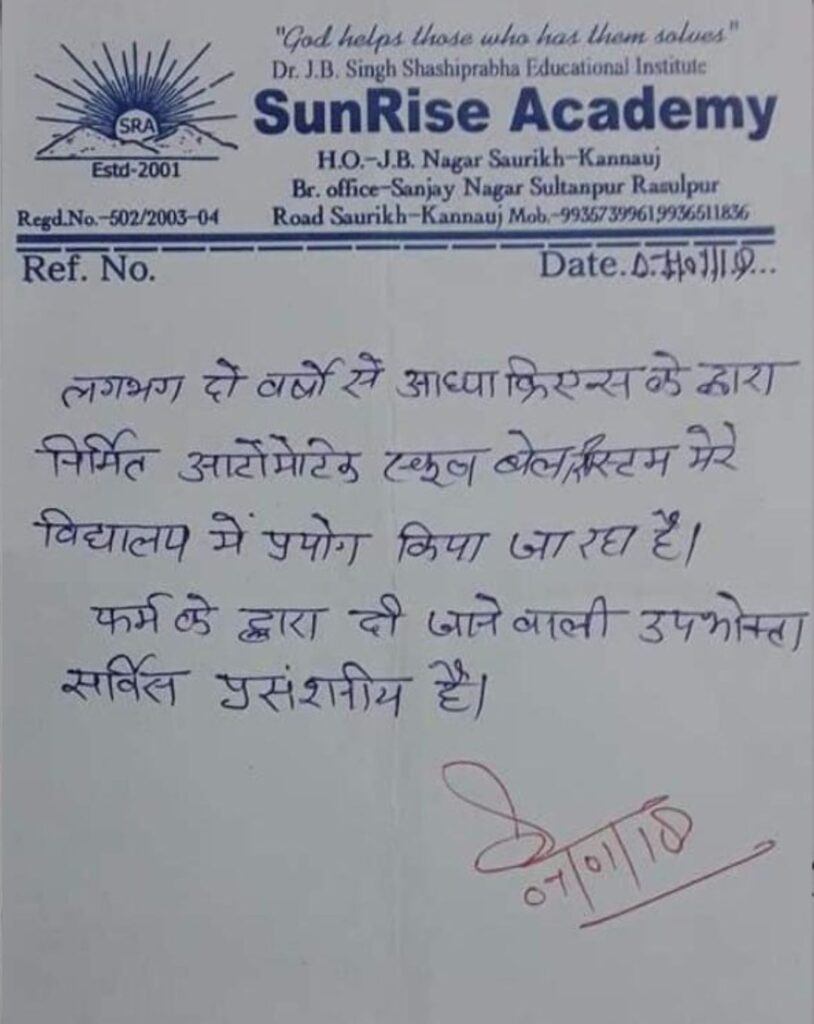 "God helps those who has them solues"
Dr. J.B. Singh Shashiprabha Educational Institute
SunRise Academy
SRA
Estd-2001
H.O.-J.B. Nagar Saurikh-Kannauj
Br. office-Sanjay Nagar Sultanpur Rasulpur
Regd.No.-502/2003-04
Road Saurikh-Kannauj Mob.-9935739961,9936511836
Ref. No.
Date.
लगभग दो वर्षो से आध्या क्रिएन्स के द्वारा
निर्मित आटोमेटिक स्कूल बेल सिस्टम मेरे
विद्यालय में प्रयोग किया जा रहा है।
फर्म के द्वारा दी जाने वाली उपभोक्ता
सर्विस प्रसंशनीय है।
07/01/18